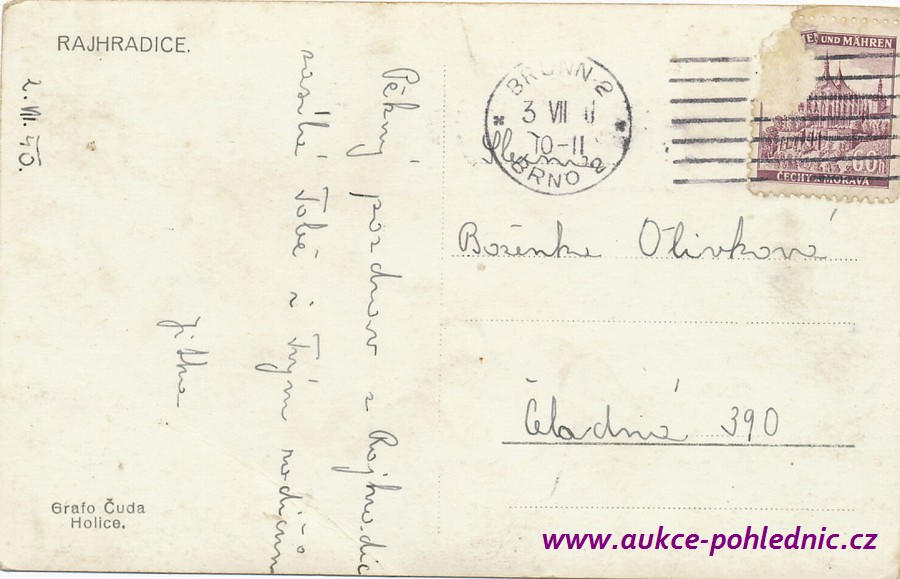 RAJHRADICE.
2. VII. 40.
Pěkný pozdrav z Rajhradic
zasílá Tobě i Tvým rodičům
Jitka
Grafo Čuda
Holice.
BRÜNN 2
3 VII
10-11
BRNO 2
EN UND MÄHREN
60h
ČECHY A MORAVA
Slečna
Boženka Olivková
Čeladná 390
www.aukce-pohlednic.cz